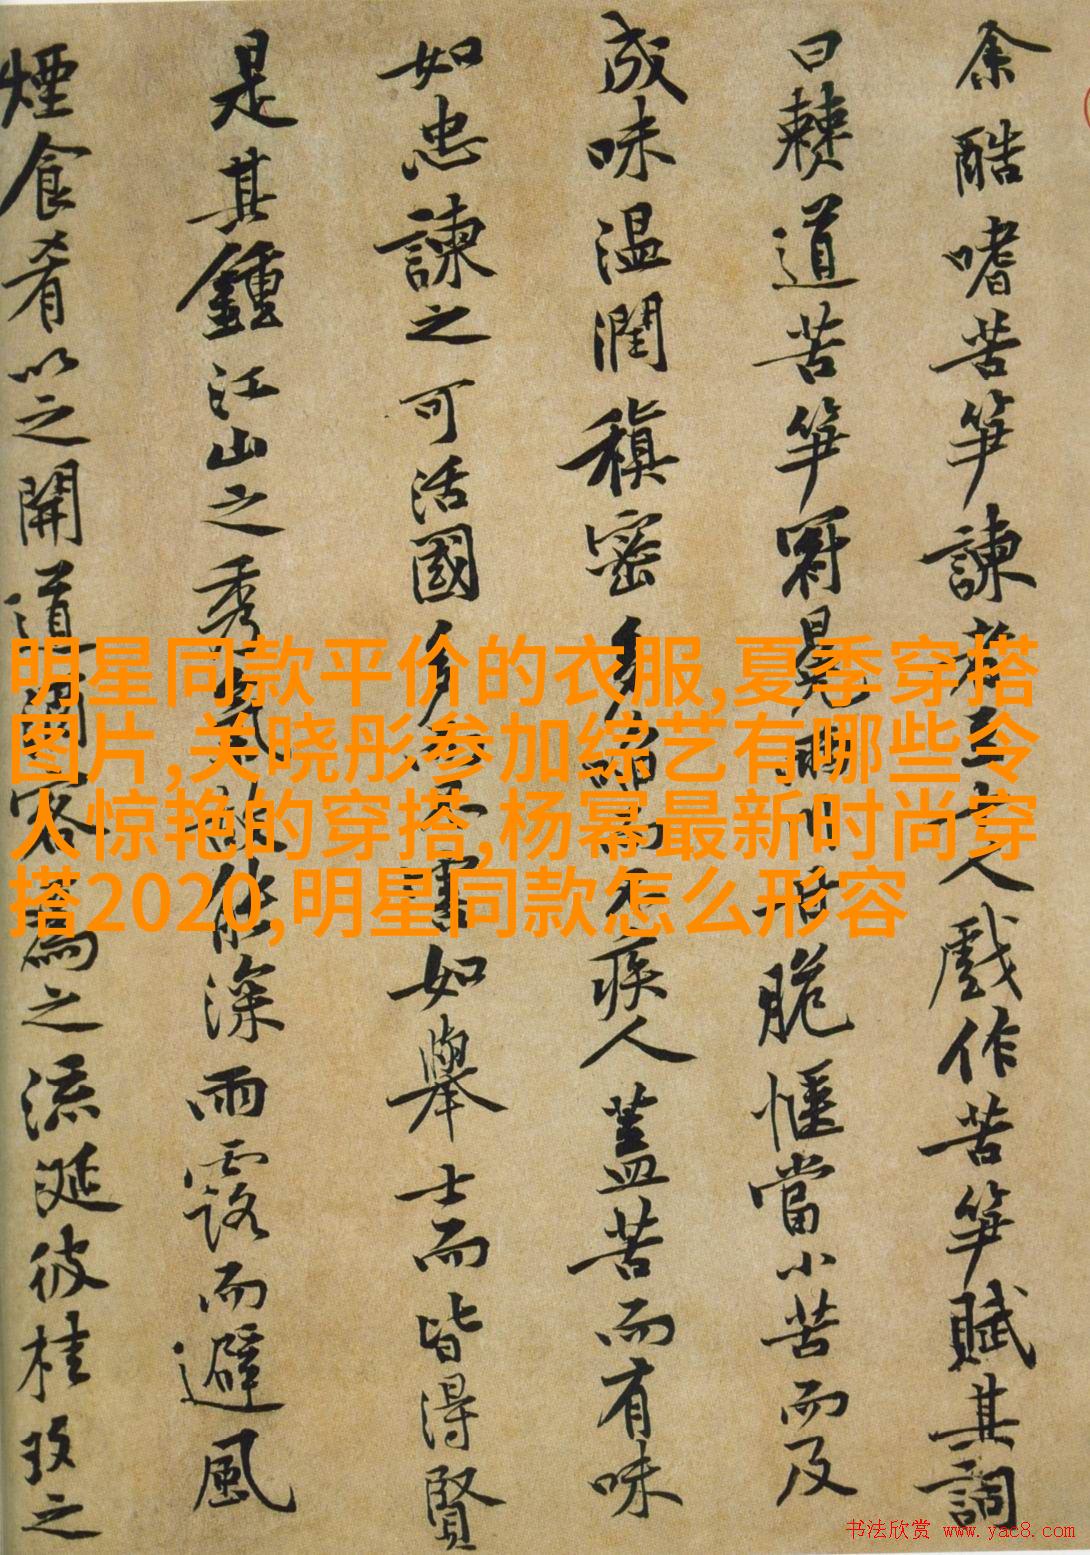 余酷嗜苦笋諫者至十人戲作苦笋賦其詞
曰僰道苦笋冠冕兩川甘脆愜當小苦而及
成味温潤稹密多啗而不疾人蓋苦而有味
如忠諫之可活國多而不害如舉士而皆得賢
是其鍾江山之秀氣故能深雨露而避風
煙食肴以之開道酒客為之流涎彼桂玫之
明星同款平价的衣服,夏季穿搭
图片,关晓彤参加综艺有哪些令
人惊艳的穿搭,杨幂最新时尚穿
搭2020,明星同款怎么形容
书法欣赏 www.yac8.com